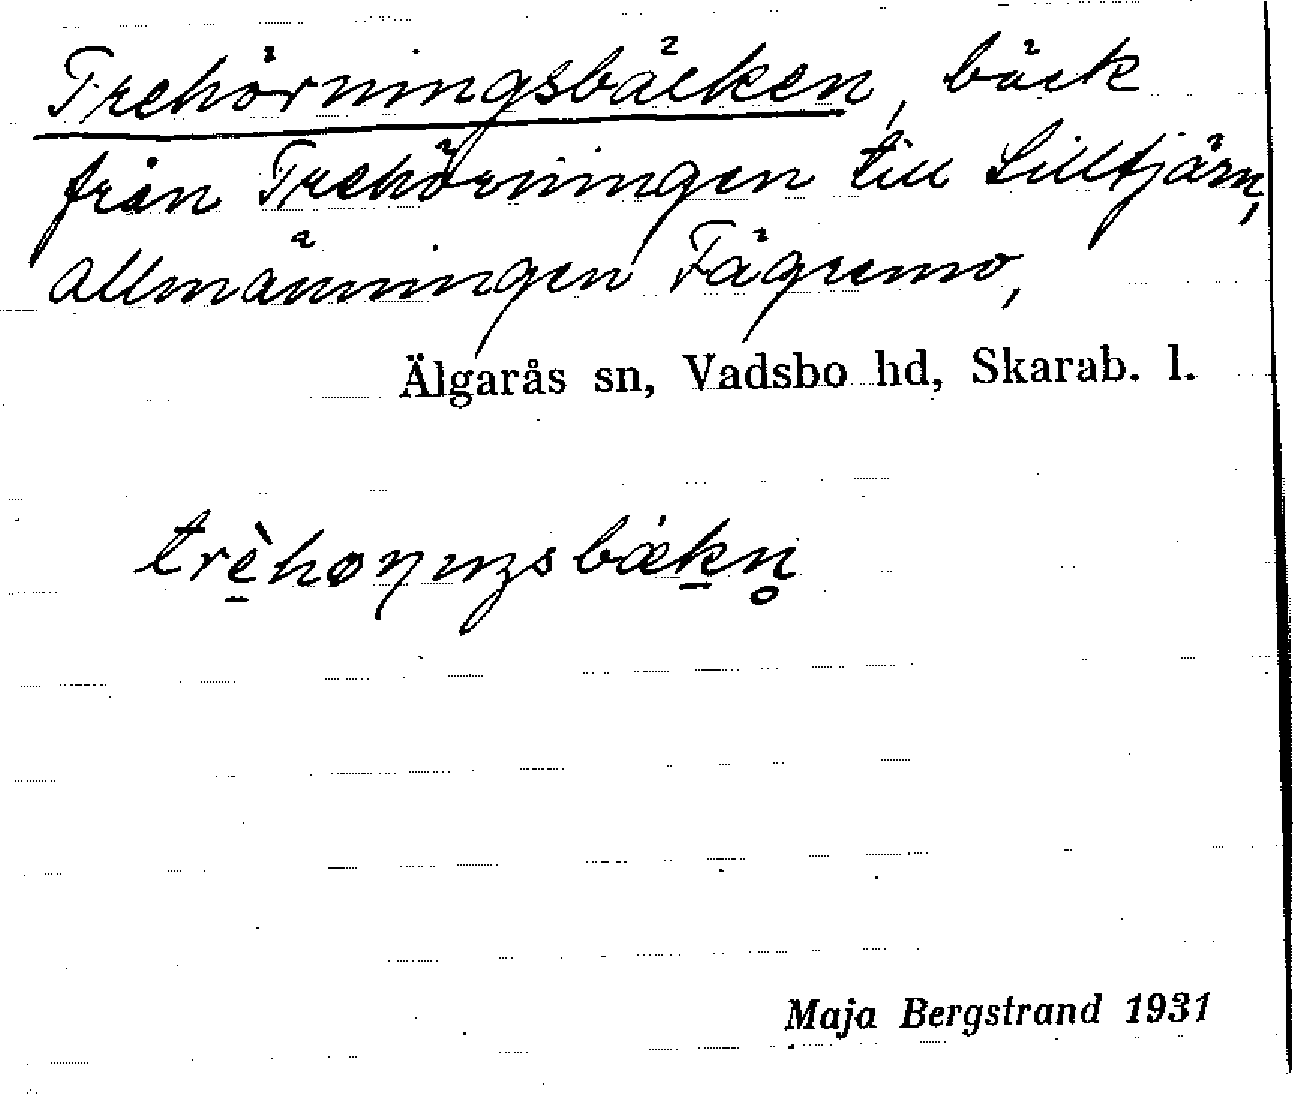 Trehörningsbäcken, bäck
från Trehörningen till Lilltjärn,
allmänningen Fägremo,
Älgarås sn, Vadsbo hd, Skarab. l.
Maja Bergstrand 1931